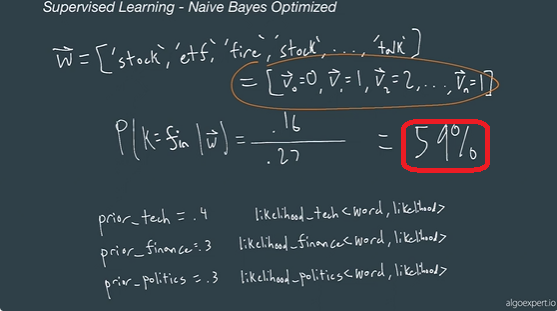 Supervised Learning - Naive Bayes Optimized
w⃗ = ['stock', 'etf', 'fire', 'stock', ..., 'talk']
= [v⃗₀=0, v⃗₁=1, v⃗₂=2, ..., v⃗ₙ=1]
P(K=fin | w⃗) = .16 / .27 = 59%
prior_tech = .4 likelihood_tech<word, likelihood>
prior_finance = .3 likelihood_finance<word, likelihood>
prior_politics = .3 likelihood_politics<word, likelihood>
algoexpert.io